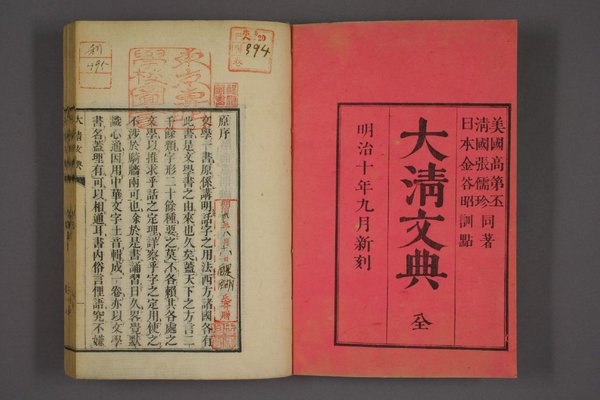 美國高第丕
清國張儒珍 同著
日本金谷昭訓點
大清文典 全
明治十年九月新刻
原序
文學一書原係講明話字之用法西方諸國各有
此書是文學書之由來也久矣蓋天下之方言二
千餘類字形二十餘種要之莫不各賴其各處之
文學以推求乎話之定理詳察乎字之定用使之
不涉於騎牆兩可也余於是書誦習日久畧覺默
識心通因用中華文字土音輯成一卷亦以文學
書名蓋理有可以相通耳書內俗言俚語究不嫌
大清文典
394
491